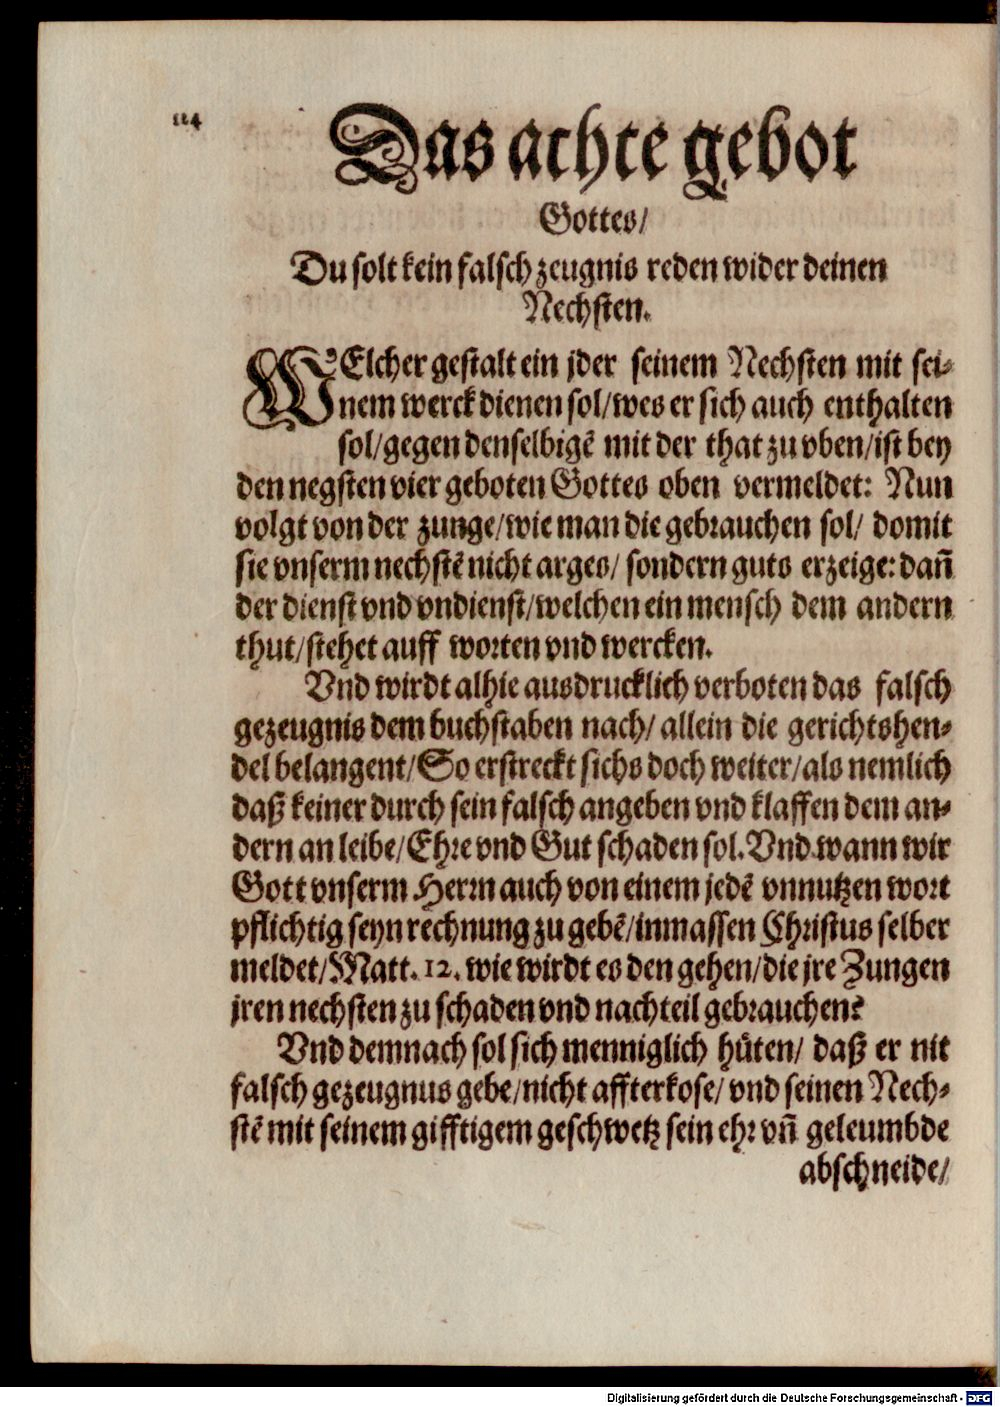 114
Das achte gebot
Gottes/
Du solt kein falsch zeugnis reden wider deinen
Nechsten.
WElcher gestalt ein jder seinem Nechsten mit sei⸗
nem werck dienen sol/wes er sich auch enthalten
sol/gegen denselbigẽ mit der that zu vben/ist bey
den negsten vier geboten Gottes oben vermeldet: Nun
volgt von der zunge/wie man die gebrauchen sol/ domit
sie vnserm nechstẽ nicht arges/ sondern guts erzeige: dañ
der dienst vnd vndienst/welchen ein mensch dem andern
thut/stehet auff worten vnd wercken.
Vnd wirdt alhie ausdrucklich verboten das falsch
gezeugnis dem buchstaben nach/ allein die gerichtshen⸗
del belangent/So erstreckt sichs doch weiter/als nemlich
daß keiner durch sein falsch angeben vnd klaffen dem an⸗
dern an leibe/Ehre vnd Gut schaden sol. Vnd wann wir
Gott vnserm Herrn auch von einem jedẽ vnnutzen wort
pflichtig seyn rechnung zu gebẽ/inmassen Christus selber
meldet/Matt. 12. wie wirdt es den gehen/die jre Zungen
jren nechsten zu schaden vnd nachteil gebrauchen?
Vnd demnach sol sich menniglich hüten/ daß er nit
falsch gezeugnus gebe/nicht affterkose/ vnd seinen Nech⸗
stẽ mit seinem gifftigem geschwetz sein ehr vñ geleumbde
abschneide/
Digitalisierung gefördert durch die Deutsche Forschungsgemeinschaft - DFG